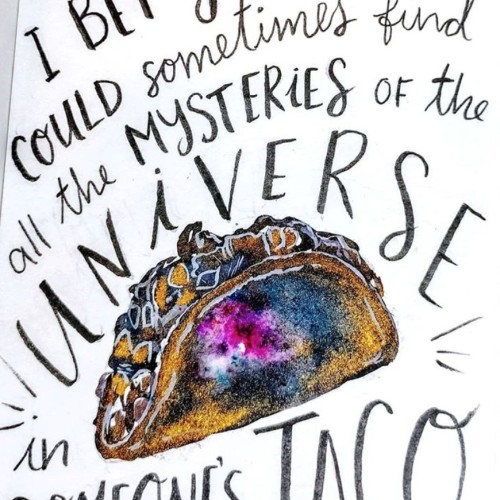 I BET
COULD sometimes find
all the MYSTERIES OF the
UNIVERSE
in
SOMEONE'S TACO